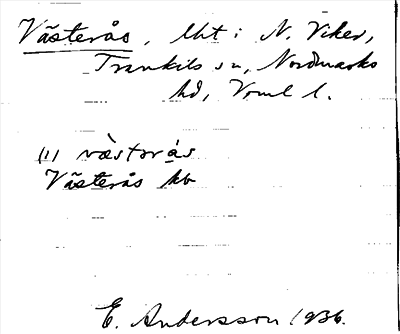 Västerås, lht i N. Viker,
Trankils sn, Nordmarks
hd, Vrml l.
(1) væstərås
Västerås kb
E. Andersson 1936.